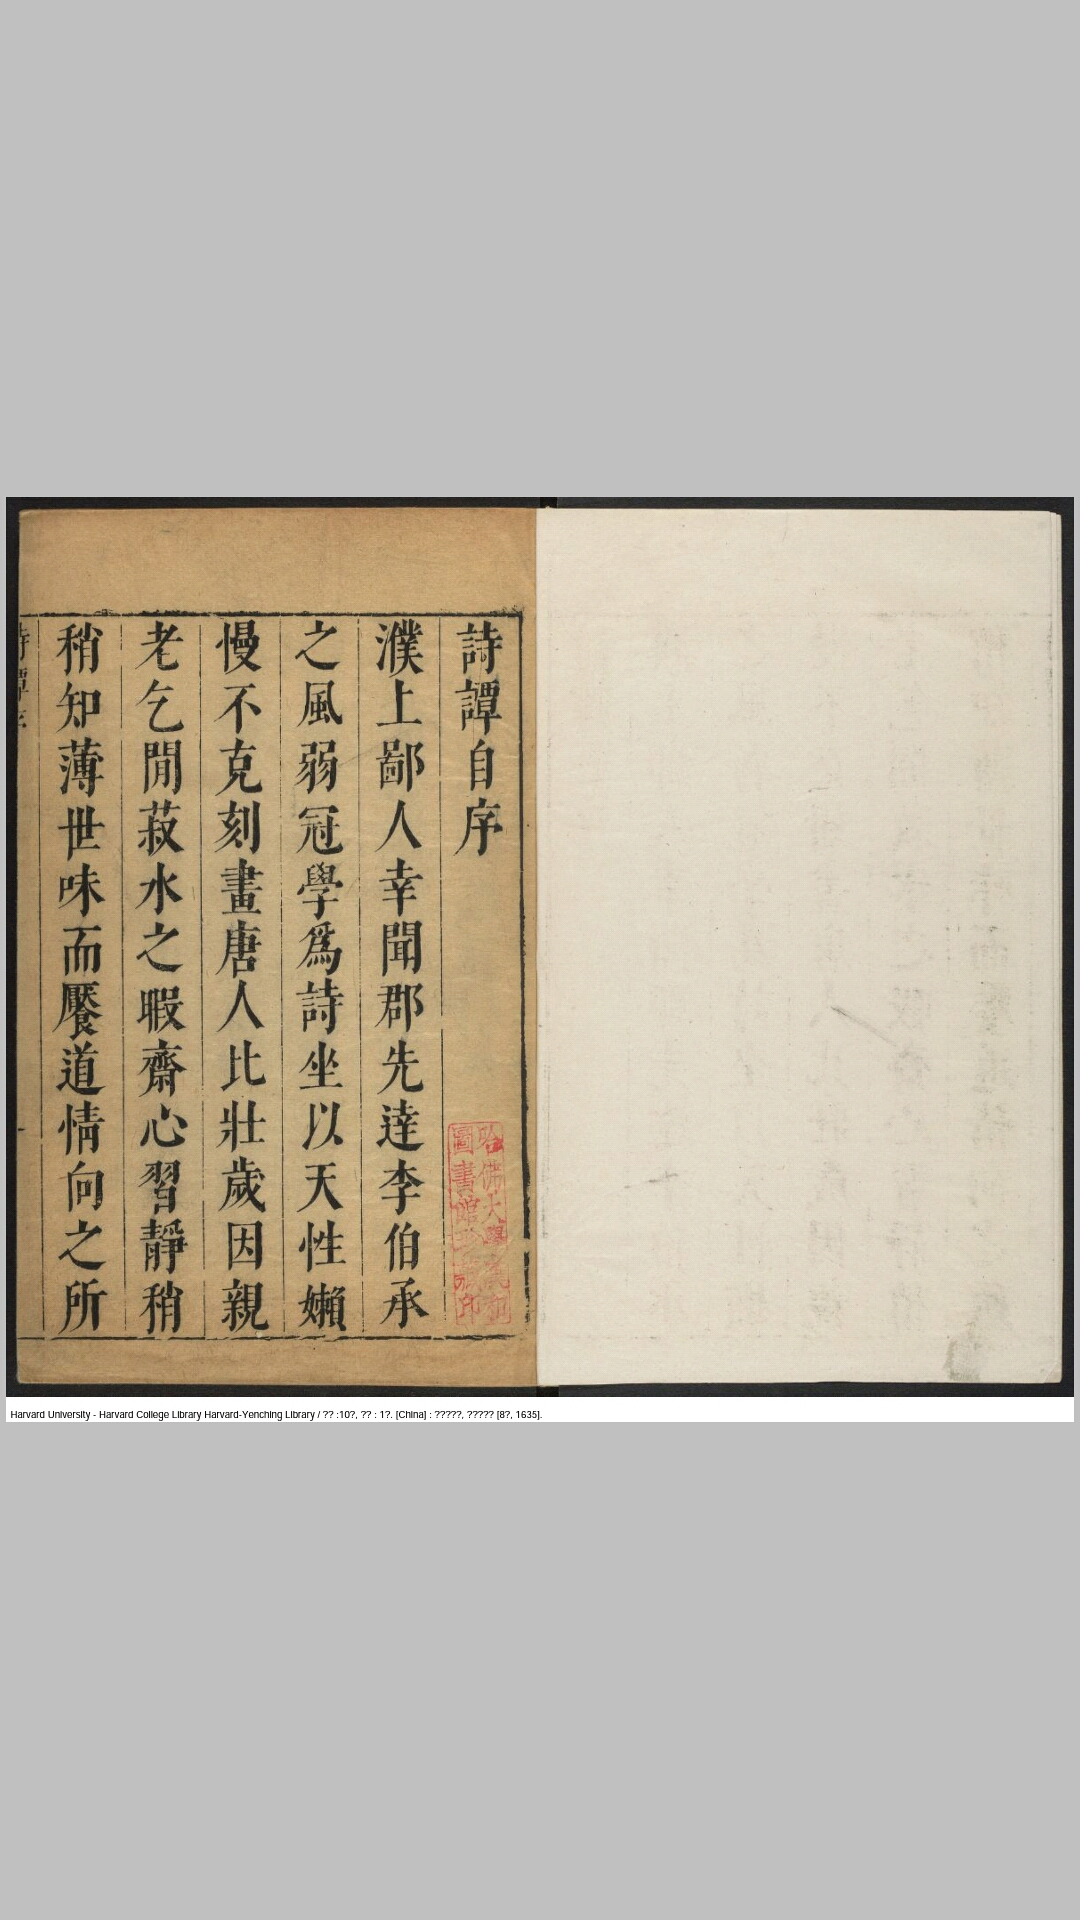 詩譚自序
濮上鄙人幸聞郡先達李伯承
之風弱冠學爲詩坐以天性嬾
慢不克刻畫唐人比壯歲因親
老乞閒菽水之暇齋心習靜稍
稍知薄世味而饜道情向之所
詩譚序
哈佛大學
圖書館珍藏印
Harvard University - Harvard College Library Harvard-Yenching Library / ?? :10?, ?? : 1?. [China] : ?????, ????? [8?, 1635].